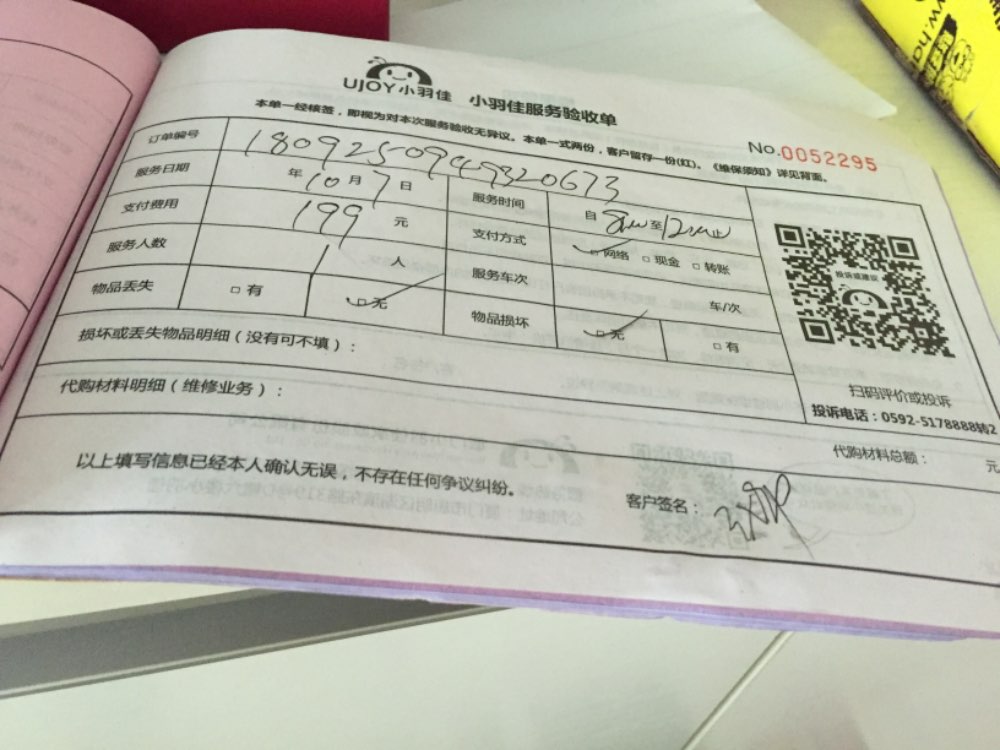 UJOY小羽佳 小羽佳服务验收单
本单一经核签，即视为对本次服务验收无异议。本单一式两份，客户留存一份(红)。《维保须知》详见背面。
No.0052295
订单编号 18092509449320673
服务日期 年10月7日 服务时间 自8 至12 止
支付费用 199 元 支付方式 □网络 □现金 □转账
服务人数 1 人 服务车次 车/次
物品丢失 □有 □无 物品损坏 □无 □有
损坏或丢失物品明细(没有可不填)：
投诉或建议
扫码评价或投诉
投诉电话：0592-5178888转2
代购材料明细(维修业务)：
代购材料总额： 元
以上填写信息已经本人确认无误，不存在任何争议纠纷。
客户签名：